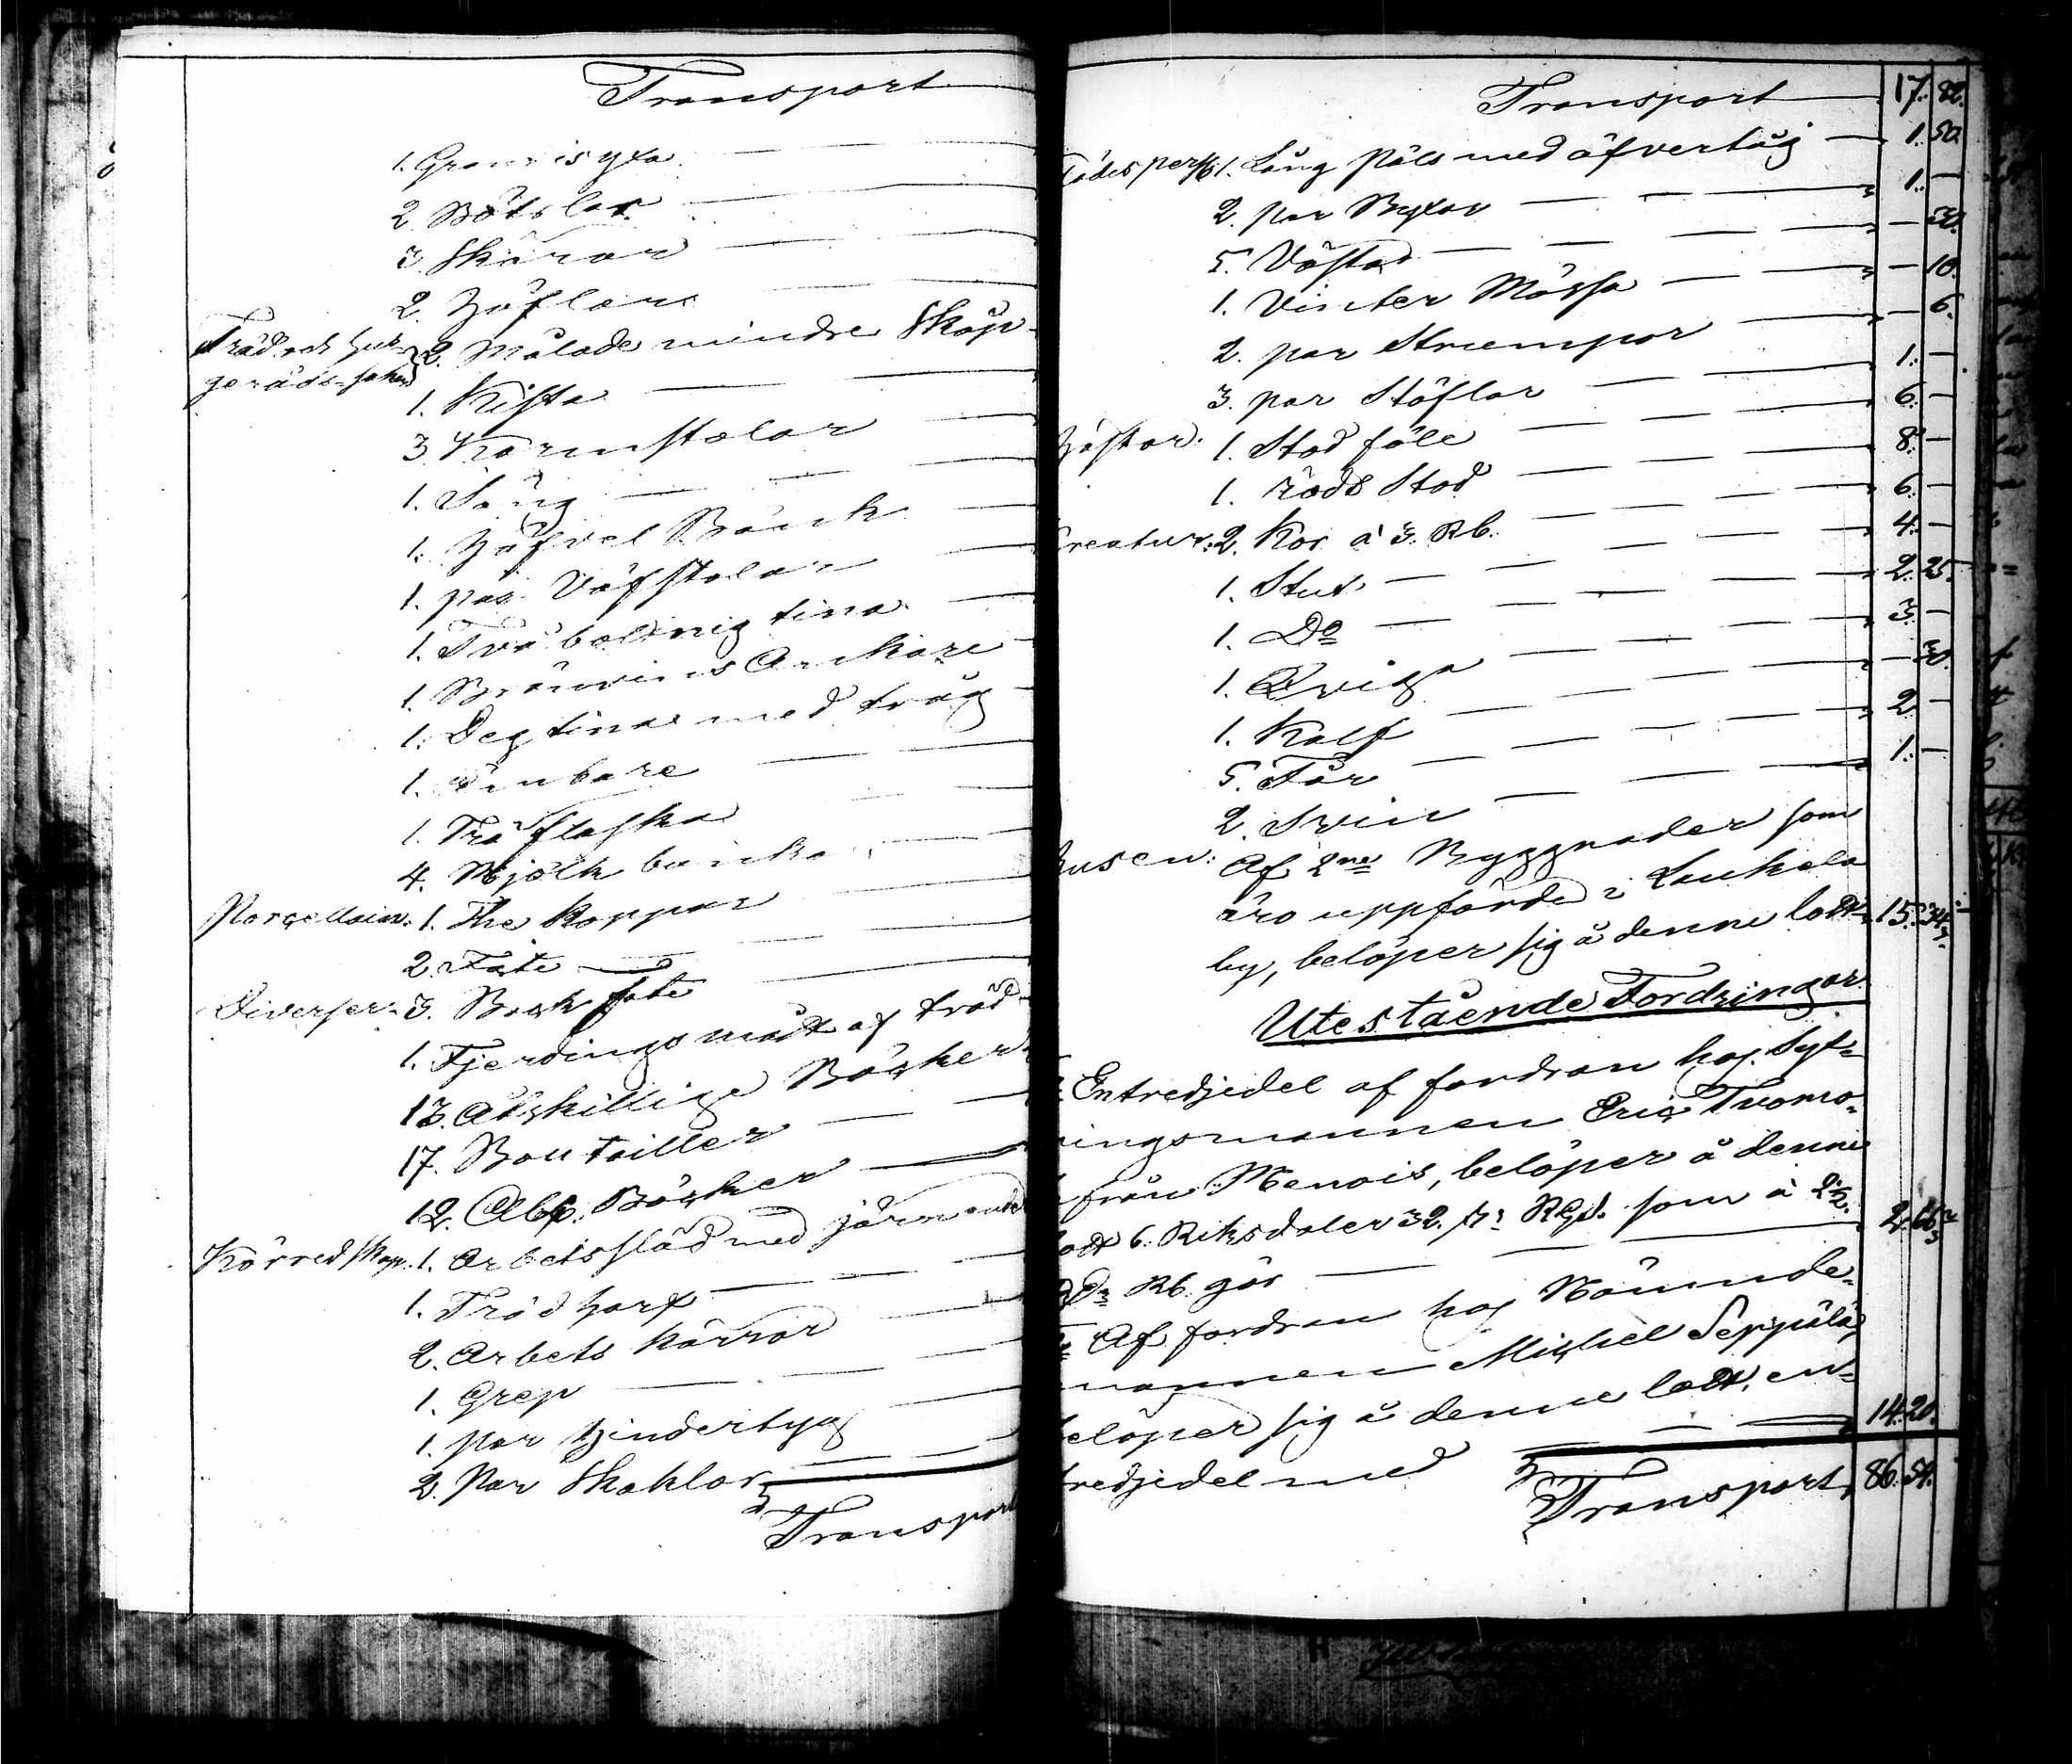 Transport
1. Grannisyxa
2 Båtslar
3 Skäror
2. Höflar
Träd och hus-
geråds-saker
2. Målade mindre Skåp
1. Kista
3 Karmstolar
1. Säng
1. Höfvel Bänk
1. par Väfstolar
1. Två bottnig tina
1. Bränvins Ankare
1. Deg tina med tråg
1. Ämbare
1. Trä flaska
4. Mjölk bunka
Porcellain. 1. The Koppar
2. Fate
Diverser. 3. Bleck fate
1. Fjerdings mått af träd
13. Åtskillige Böcker
17. Boutailler
12. Abc. Böcker
Körredskap. 1. Arbetssläd med järn
1. Träd harf
2. Arbets kärror
1. Grep
1. par tyg
2. Par Skaklar
Transport
Transport 17. 82.
1. Lång Päls med öfvertåg 1. 50.
2. par Byxor 1. —
5. Västar — 50.
1. Vinter Mössa — 10.
2. par Strumpor — 6.
3. par Stöflar 1. —
Hästar. 1. Stod föle 6. —
1. röd Stod 8. —
Creatur. 2. Kor à 3. Rb. 6. —
1. Stut 4. —
1. Do 2. 25.
1. Qviga 3. —
1. Kalf — 30.
5. Får 2 —
2. Svin 1. —
Husen: Af 2ne Byggnader som
äro uppförde i Laukela
by, belöper sig å denne lott 15. 34
Utestående Fordringar
Entredjedel af fordran hos Syt-
ningsmannen Eric Tuomo-
från Menois, belöper å denne
lott 6. Riksdaler 32. Rgd. som à 2½.
Rb. gör 2. 66
Af fordran hos Nämnde-
mannen Michel Seppälä,
belöper sig å denne lott, en-
tredjedel med 14. 20.
Transport 86. 54.